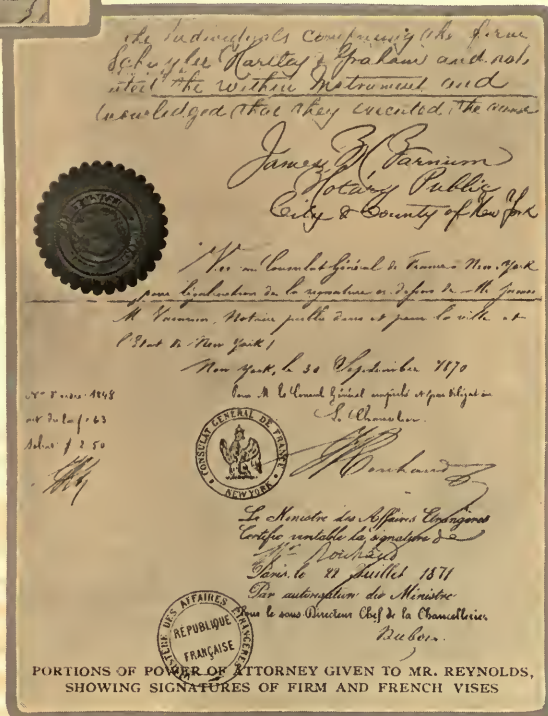 the individuals composing the firm
Schuyler Hartley & Graham and
the within Instrument and
knowledged that they executed the same
James M Varnum
Notary Public
City & County of New York
Vu au Consulat Général de France à New-York
pour légalisation de la signature ci-dessus de M. James
M. Varnum, Notaire public dans et pour la ville et
l'Etat de New York
New York, le 30 Septembre 1870
Pour M. le Consul Général empêché et par délégation
Le Chancelier.
1848
63
2 50
CONSULAT GENERAL DE FRANCE
NEW YORK
Le Ministre des Affaires Etrangères
Certifie véritable la signature de
Mr
Paris, le 22 Juillet 1871
Par autorisation du Ministre
Pour le sous-Directeur Chef de la Chancellerie
Dubois
MINISTERE DES AFFAIRES ETRANGERES
REPUBLIQUE
FRANÇAISE
PORTIONS OF POWER OF ATTORNEY GIVEN TO MR. REYNOLDS,
SHOWING SIGNATURES OF FIRM AND FRENCH VISES